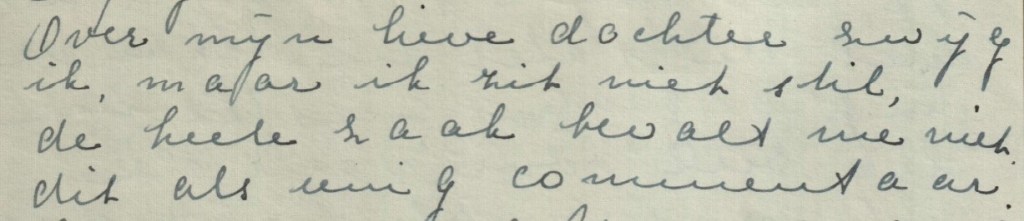 Over mijn lieve dochter zwijg
ik, maar ik zit niet stil,
de heele zaak bevalt me niet.
dit als eenig commentaar.